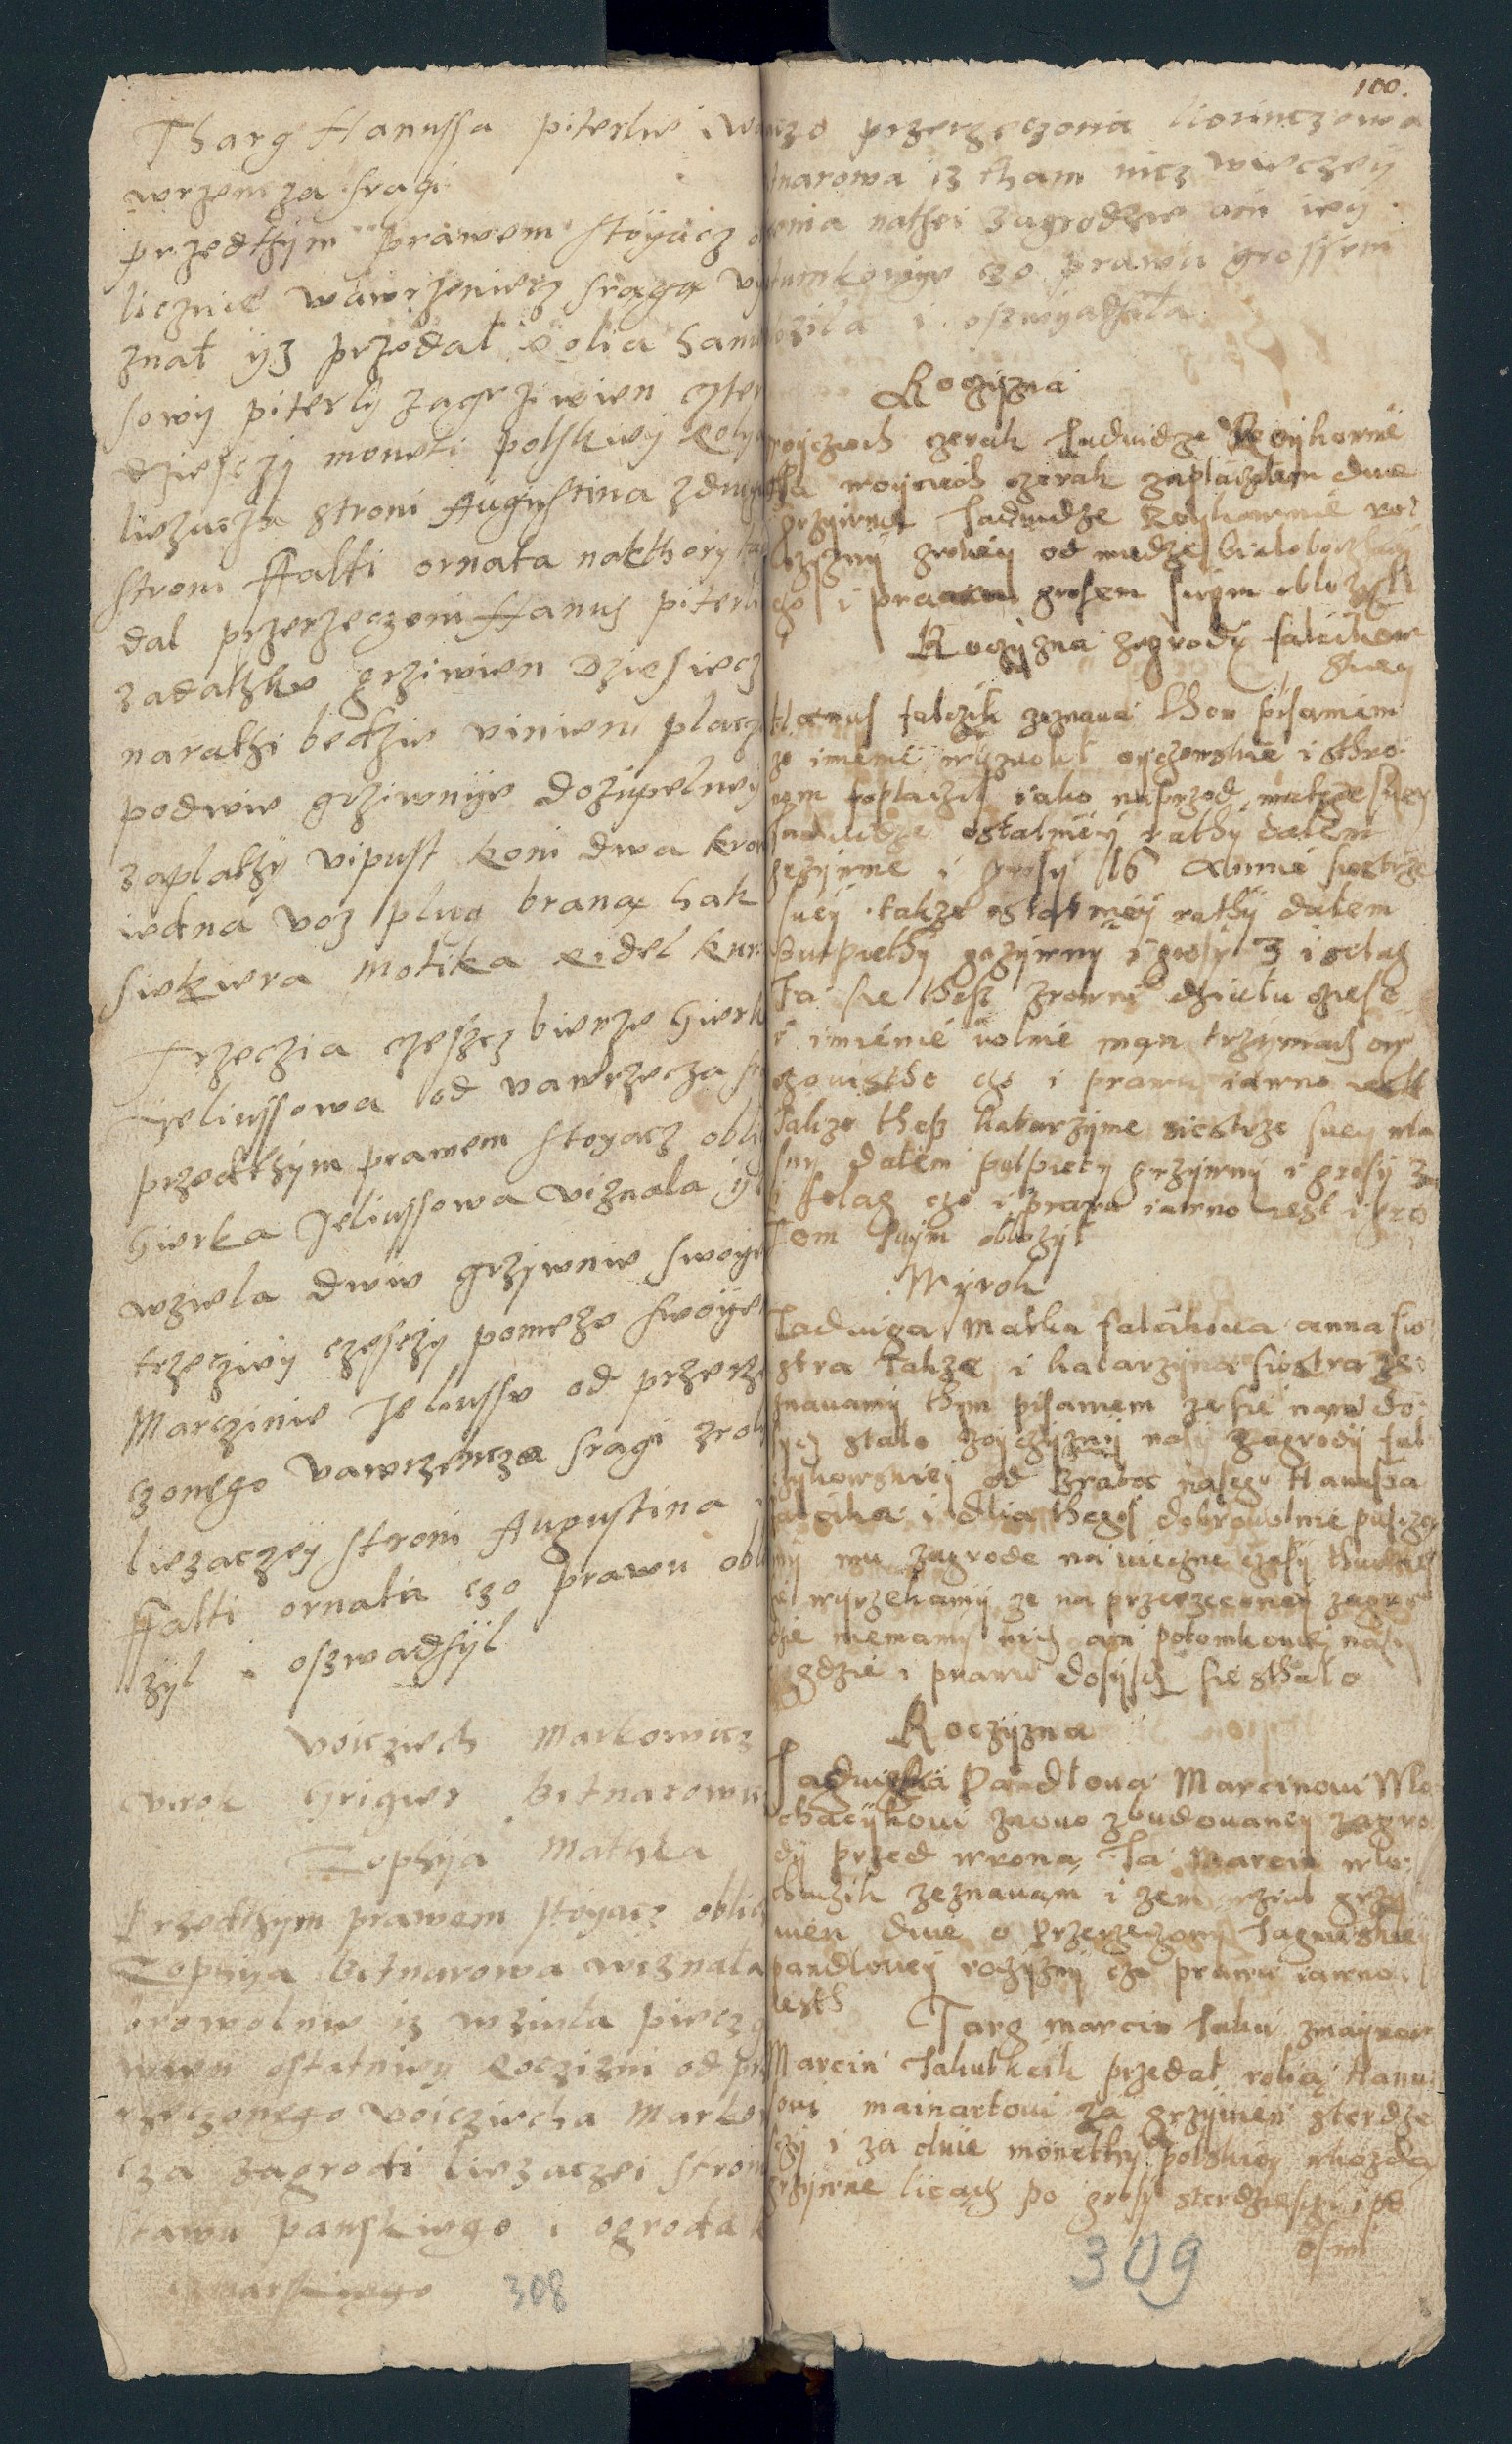 Tharg Hanussa piterlie i Wa
wrzencza sragi
przedthym prawem stoyacz o
licznie wawrzeniecz sraga vy
znał yz przedał rolia hanu
sowy piterly zagrziwien czter
dziesczy moneti polskiey roly
liezacza stroni Augustina zdrugi
stroni ffalti ornata nakthory
dal przerzeczoni Hanus piterl
zadathku grziwien dziesiecz
narathi bedzie vinien placz
podwie grziwnye dozupelney
zaplathy vipust koni dwa krow
iedna voz plug brona hak
siekiera motika ridel kur
Trzeczia czescz bierze hierk
Jeliussowa od vawrzecza sr
przedthym prawem stoyacz obli
hierka Jeliussowa viznala yz
wziela dwie grzywnie swoye
trzecziey czesczy pomezo swoye
Marczinie Jeliussie od przerze
czonego vawrzencza sragi zrol
liezaczey stroni Augustina
ffalti ornata czo prawu obl
zyl i oszwadsyl
voicziech Markowicz
wrok hrigier bitnarowi
Zophija Mathka
Przedthym prawem stoyacz oblic
Zophya bitnarowa wiznała
browolnie iz wzieła piecz g
wien ostatniey roczizni od prze
rzeczonego voicziecha Marko
cza zagrodi liezaczei stroni
stawu panskiego i ogroda k
czmarskiego
308
100.
czo przerzeczona liorinczowa
tnarowa iz tham nicz wieczey
oma nathei zagrodzie ani iey
tumkowye czo prawu grossem
ozila i oszwyathała
Roczyzna
woyczech czerak Jadwidze Reychornie
Ja woyciech czerak zaplaczilem dwie
grzywnie Jadwidze Reychornie ro
czyzny zroley od miedze bialoborskiey
czo i prawu grosem swym oblozyl
Roczyzna zagrody falcikow
skiey
Hanus falczik zeznava them pisaniem
ze imienie wszytko oyczowskie i stro
nom poplaczil iako naprzod matce swey
Jadwidze ostatniey rathy dalem
grzywne i grosy 16 Annie siestrze
swey takze ostatniey rathy dalem
pulpiethy grzywny i grosy 3 i selag
Ja sie thesz zrowni dzielu czese
i imienie volnie mam trzymacz oy
czowskie czo i prawu iawno iest
Takze thesz katarzynie siestrze swey wla
sny dalem pulpiety grzywny i grosy 3
i selag czo i prawu iawno iest i gro
sem swym oblozyl
Wyrok
Jadwiga matka falcikowa anna sio
stra takze i katarzyna siostra ze
znavamy thym pisaniem ze sie nam do
sycz stalo zoyczyzny nasy zagrody fal
czykowskiey od brata nasego Hanusa
falcika i dlia thegosz dobrovolnie puscza
my mu zagrode na wieczne czasy thudziesz
sie wyrzekamy ze na przerzeczoney zagro
dzie niemamy nicz ani potomkowie nasy
gdzie i prawu dosycz sie sthalo
Roczyzna
Jadwiska Pandlova Marcinovi Wlo
chacykovi znovo zbudovaney zagro
dy przed wrona Ja Marcin wlo
chaczik zeznavam i zem wzial grzy
wien dwie o przerzeczony Jagnieskiey
pandlovey roczyzny czo prawu iawno
iesth
Targ marcin Jakui zmaynar
Marcin Jakubkcik przedal rolią Hanu
sovi mainartovi za grzywien sterdzie
sczy i za dwie monethy polskiey wkazdą
grzywne licącz po grosy sterdziesczi i po
osmi
309